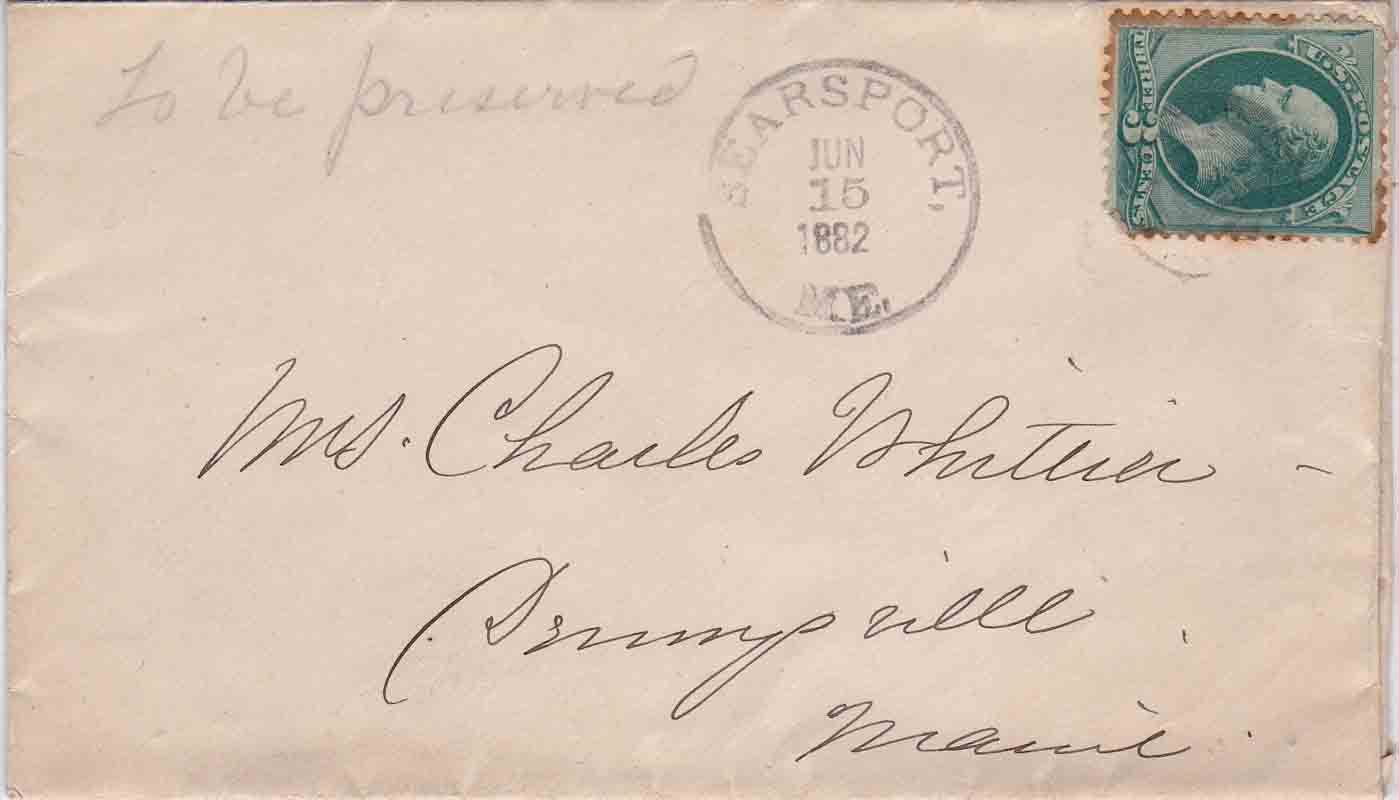 To be preserved
SEARSPORT,
JUN
15
1882
ME.
U.S. POSTAGE
THREE 3 CENTS
Mrs. Charles Whittier -
Dennysville.
Maine.